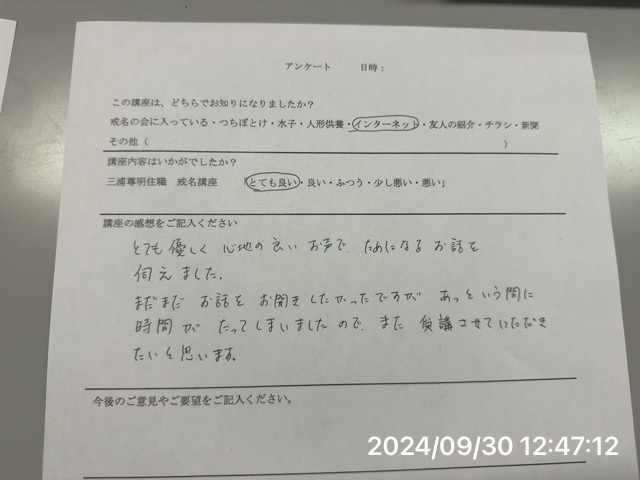 アンケート　　日時：
この講座は、どちらでお知りになりましたか？
戒名の会に入っている・つちぼとけ・水子・人形供養・インターネット・友人の紹介・チラシ・新聞
その他（　　　　　　　　　　）
講座内容はいかがでしたか？
三浦尊明住職　戒名講座　「とても良い・良い・ふつう・少し悪い・悪い」
講座の感想をご記入ください
とても優しく 心地の良い お声で、ためになる お話を
伺えました。
まだまだ お話を お聞きしたかったですが あっという間に
時間が たってしまいましたので、また 受講させていただき
たいと思います。
今後のご意見やご要望をご記入ください。
2024/09/30 12:47:12